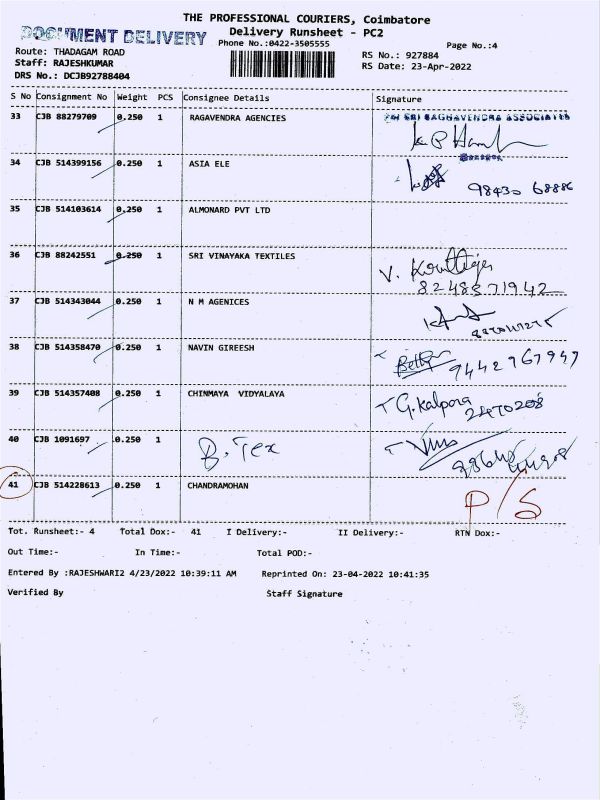 THE PROFESSIONAL COURIERS, Coimbatore
DOCUMENT DELIVERY Delivery Runsheet - PC2
Phone No.:0422-3505555 Page No.:4
Route: THADAGAM ROAD RS No.: 927884
Staff: RAJESHKUMAR RS Date: 23-Apr-2022
DRS No.: DCJB92788404
S No Consignment No Weight PCS Consignee Details Signature
33 CJB 88279709 0.250 1 RAGAVENDRA AGENCIES SRI RAGHAVENDRA ASSOCIATES
34 CJB 514399156 0.250 1 ASIA ELE 98430 68886
35 CJB 514103614 0.250 1 ALMONARD PVT LTD
36 CJB 88242551 0.250 1 SRI VINAYAKA TEXTILES V.
8248571942
37 CJB 514343044 0.250 1 N M AGENICES
38 CJB 514358470 0.250 1 NAVIN GIREESH 9442967947
39 CJB 514357408 0.250 1 CHINMAYA VIDYALAYA G. Kalpora 2470208
40 CJB 1091697 0.250 1 B. Tex
41 CJB 514228613 0.250 1 CHANDRAMOHAN P/S
Tot. Runsheet:- 4 Total Dox:- 41 I Delivery:- II Delivery:- RTN Dox:-
Out Time:- In Time:- Total POD:-
Entered By :RAJESHWARI2 4/23/2022 10:39:11 AM Reprinted On: 23-04-2022 10:41:35
Verified By Staff Signature